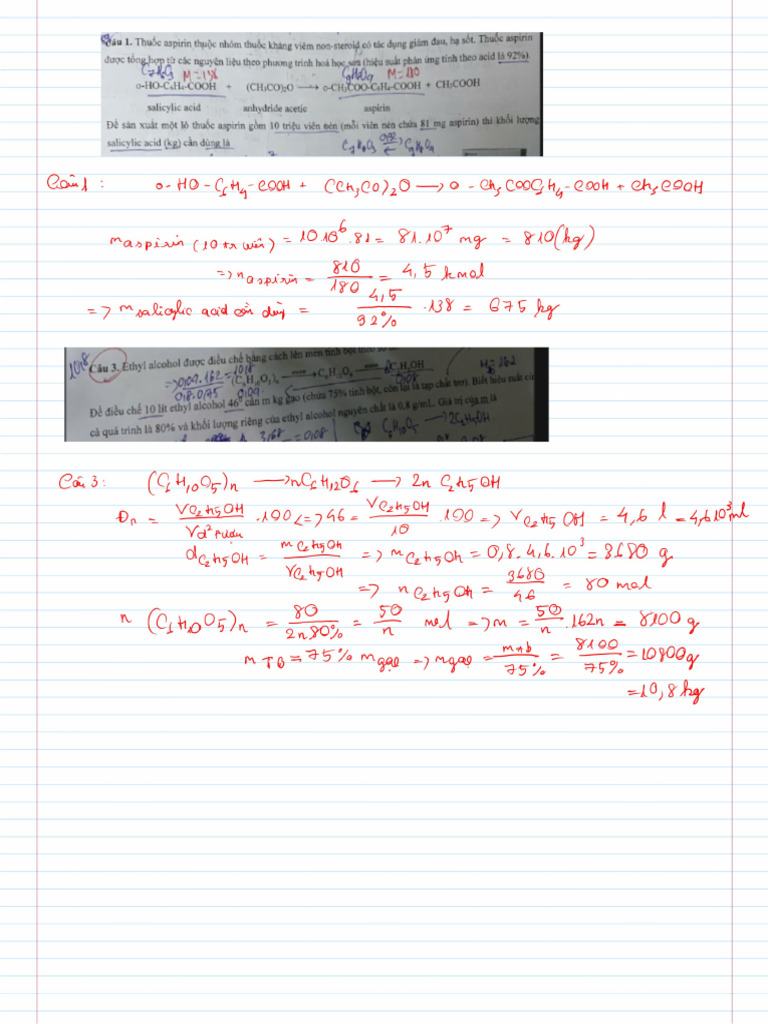 Câu 1. Thuốc aspirin thuộc nhóm thuốc kháng viêm non-steroid có tác dụng giảm đau, hạ sốt. Thuốc aspirin
được tổng hợp từ các nguyên liệu theo phương trình hoá học sau (hiệu suất phản ứng tính theo acid là 92%)
C7H6O3 M=138 C9H8O4 M=180
o-HO-C6H4-COOH + (CH3CO)2O ⟶ o-CH3COO-C6H4-COOH + CH3COOH
salicylic acid anhydride acetic aspirin
Để sản xuất một lô thuốc aspirin gồm 10 triệu viên nén (mỗi viên nén chứa 81 mg aspirin) thì khối lượng
salicylic acid (kg) cần dùng là
Câu 1: o-HO-C6H4-COOH + (CH3CO)2O ⟶ o-CH3COOC6H4-COOH + CH3COOH
m aspirin (10 tr viên) = 10.10^6.81 = 81.10^7 mg = 810 (kg)
=> n aspirin = 810/180 = 4,5 kmol
=> m salicylic acid cần dùng = 4,5/92% .138 = 675 kg
Câu 3. Ethyl alcohol được điều chế bằng cách lên men tinh bột theo sơ đồ
(C6H10O5)n ⟶ C6H12O6 ⟶ C2H5OH
Để điều chế 10 lít ethyl alcohol 46° cần m kg gạo (chứa 75% tinh bột, còn lại là tạp chất trơ). Biết hiệu suất của
cả quá trình là 80% và khối lượng riêng của ethyl alcohol nguyên chất là 0,8 g/mL. Giá trị của m là
Câu 3: (C6H10O5)n ⟶ nC6H12O6 ⟶ 2n C2H5OH
Đr = V C2H5OH/V d² rượu .100 <=> 46 = V C2H5OH/10 .100 => V C2H5OH = 4,6 l = 4,6.10^3 ml
d C2H5OH = m C2H5OH/V C2H5OH => m C2H5OH = 0,8.4,6.10^3 = 3680 g
=> n C2H5OH = 3680/46 = 80 mol
n (C6H10O5)n = 80/2n80% = 50/n mol => m = 50/n .162n = 8100 g
m TB = 75% m gạo => m gạo = m tb/75% = 8100/75% = 10800 g
= 10,8 kg